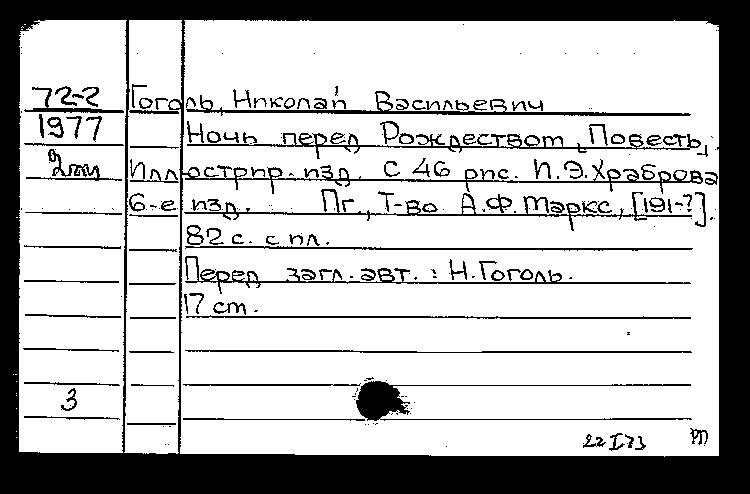 72-2 Гоголь, Николай Васильевич
1977 Ночь перед Рождеством [Повесть]
Иллюстрир. изд. С 46 рис. И.Э.Храброва
6-е изд. Пг., Т-во А.Ф.Маркс, [191-?].
82 с. с ил.
Перед загл. авт.: Н.Гоголь.
17 cm.
3
22 I 73